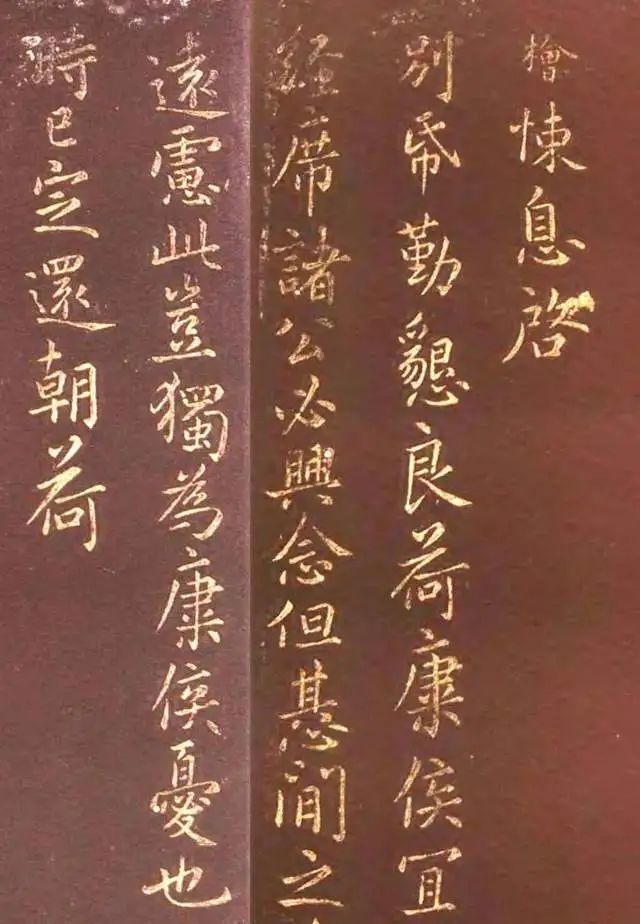 檜悚息啓
別帋勤懇良荷康侯宜
經席諸公必興念但惎間之
遠慮此豈獨為康侯憂也
時已定還朝荷